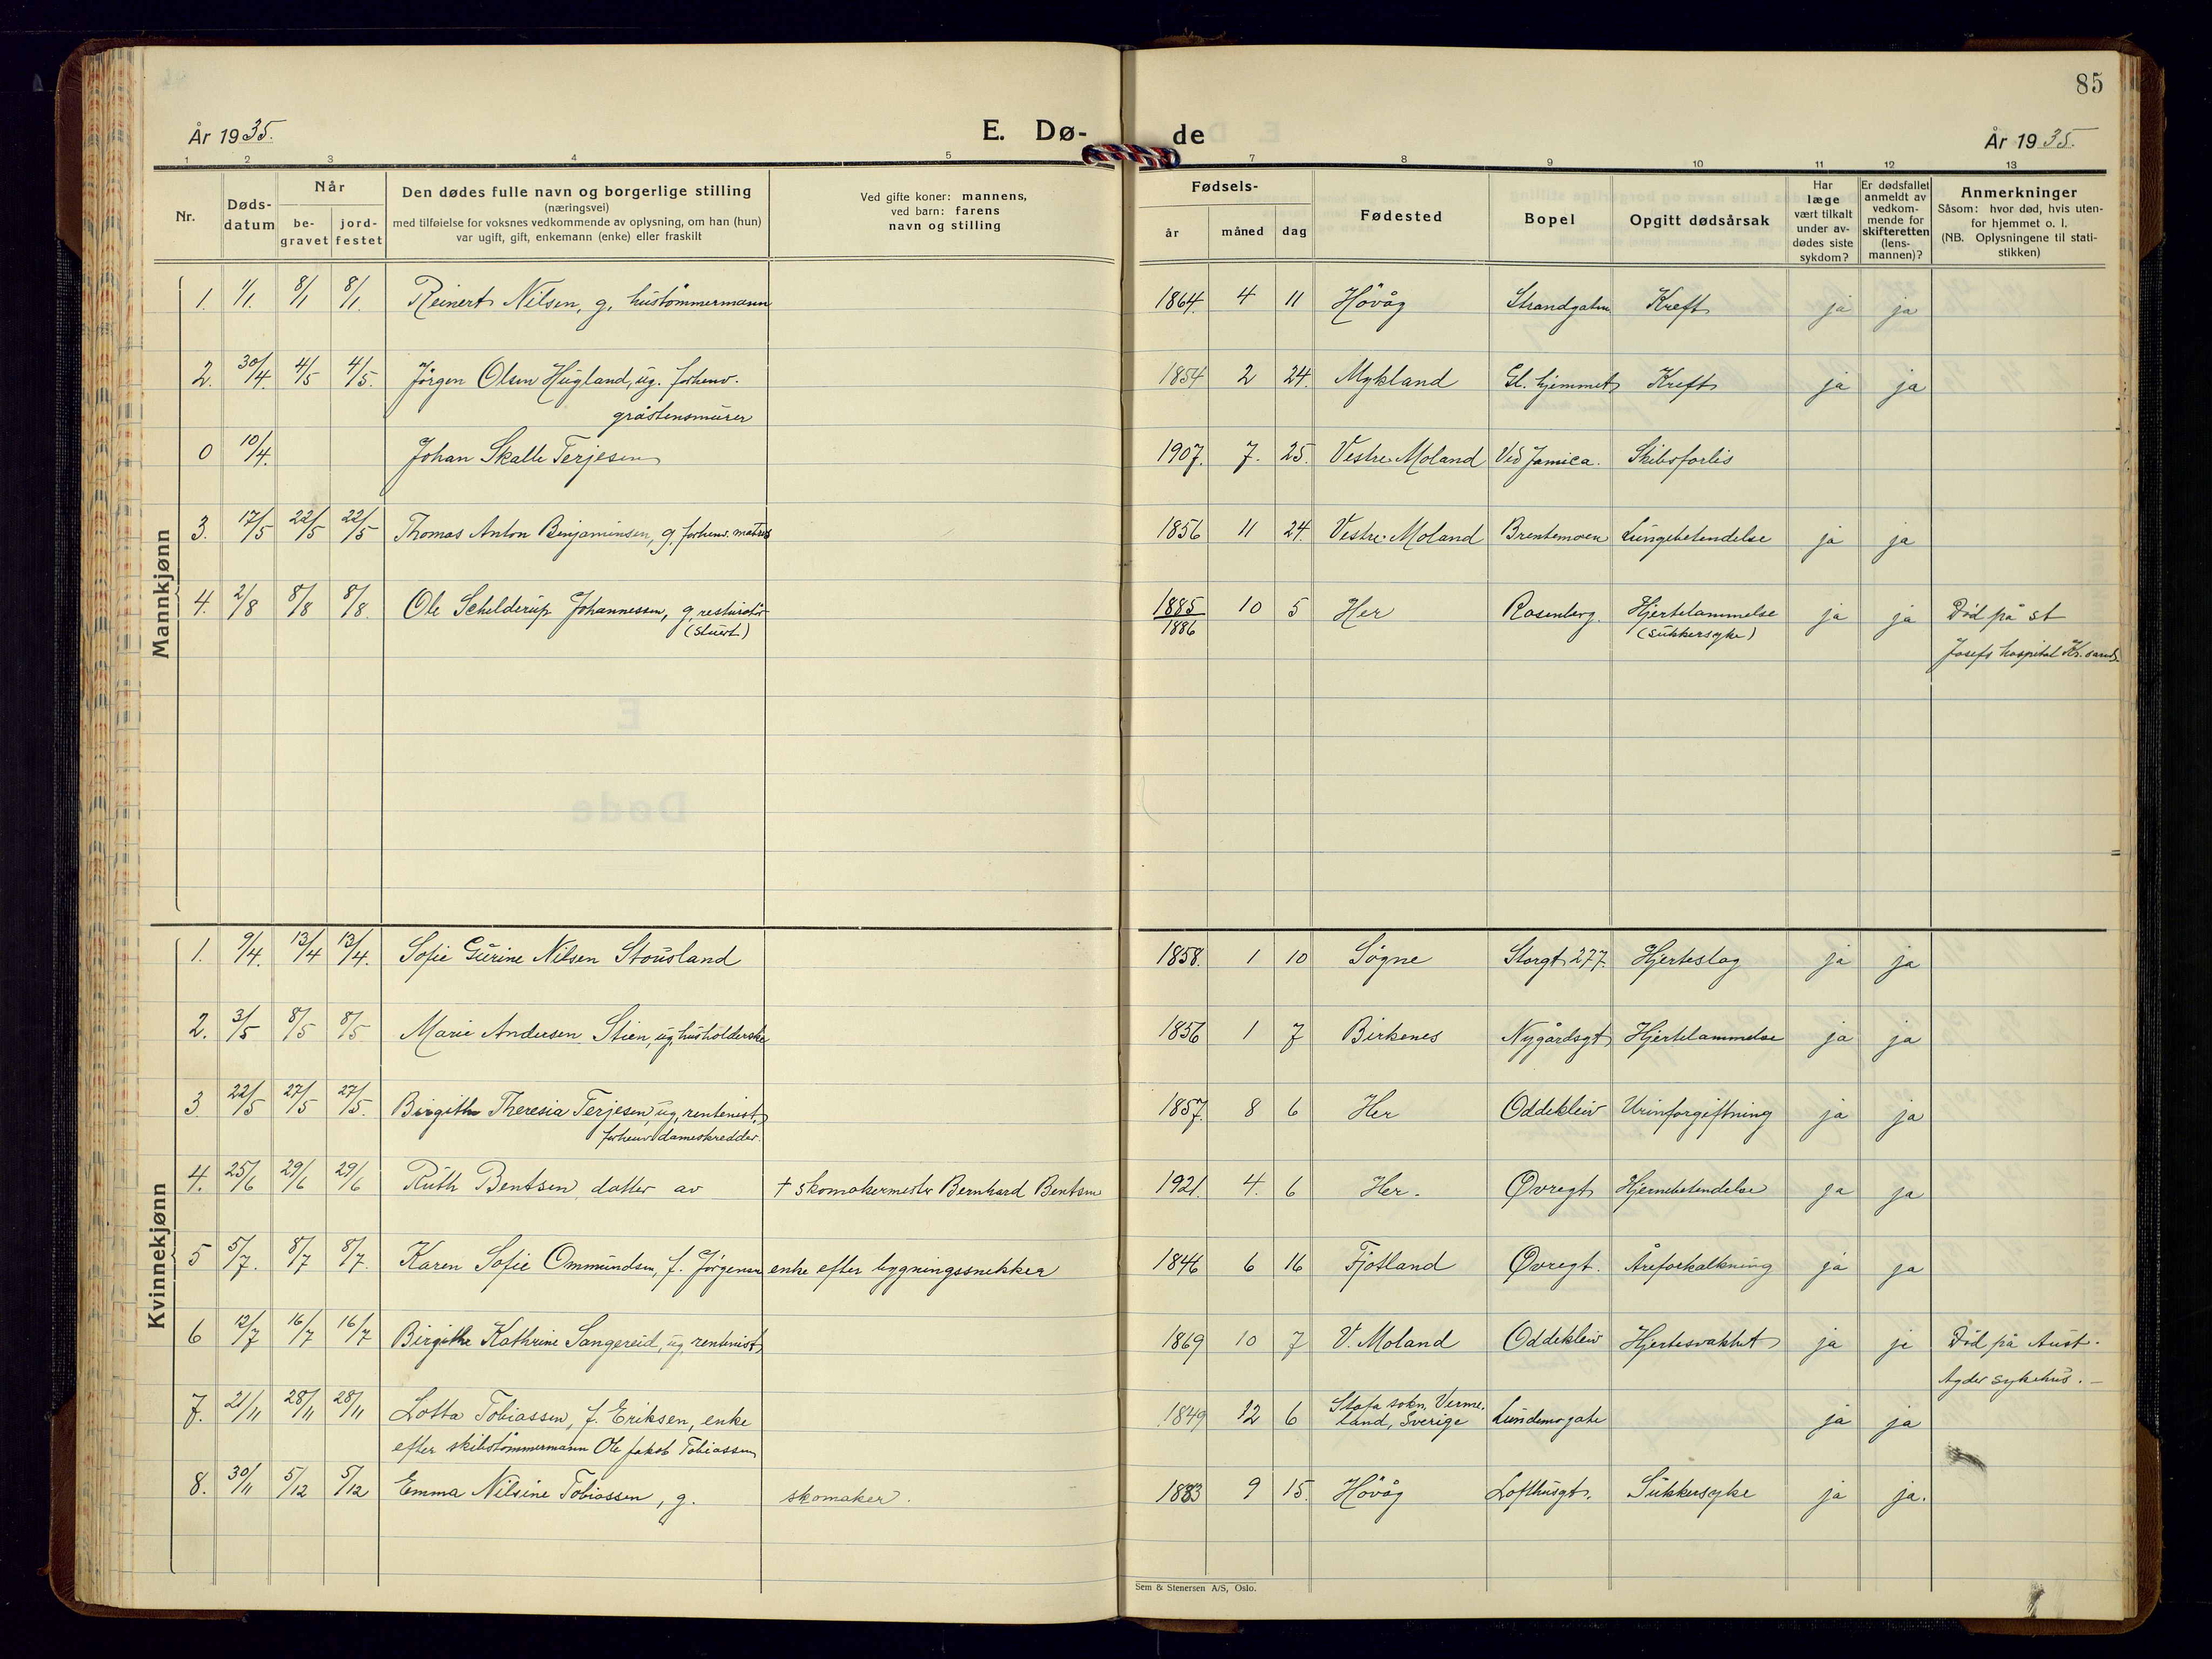 85
År 1935.
E. Dø-
de
År 1935.
1 2 3 4 5 7 8 9 10 11 12 13
Nr.
Døds-
datum
Når
be-
gravet
jord-
festet
Den dødes fulle navn og borgerlige stilling
(næringsvei)
med tilføielse for voksnes vedkommende av oplysning, om han (hun)
var ugift, gift, enkemann (enke) eller fraskilt
Ved gifte koner: mannens,
ved barn: farens
navn og stilling
Fødsels-
år
måned
dag
Fødested
Bopel
Opgitt dødsårsak
Har
læge
vært tilkalt
under av-
dødes siste
sykdom?
Er dødsfallet
anmeldt av
vedkom-
mende for
skifteretten
(lens-
mannen)?
Anmerkninger
Såsom: hvor død, hvis uten-
for hjemmet o. l.
(NB. Oplysningene til stati-
stikken)
Mannkjønn
1. 1/1. 8/1 8/1. Reinert Nilsen, g, hustömmermann 1864. 4 11 Hövåg Strandgaten Kreft ja ja
2. 30/4. 4/5 4/5. Jörgen Olsen Hugland, ug. forhenv. 1854 2 24. Mykland Gl. hjemmet Kreft ja ja
gråstensmurer
0 10/4. Johan Skalle Terjesen 1907. 7. 25. Vestre-Moland Ved Jamica. Skibsforlis
3. 17/5 22/5 22/5 Thomas Anton Benjaminsen, g, forhenv. matros 1856 11 24. Vestre-Moland Brentemoen Lungebetendelse ja ja
4. 2/8 8/8 8/8. Ole Schelderup Johannessen, g, resturatör 1885 10 5 Her Rosenberg. Hjertelammelse ja ja Död på st
(stuert) 1886 (sukkersyke)
Josefs hospital Kr.sand.
Kvinnekjønn
1. 9/4. 13/4 13/4. Sofie Gurine Nilsen Stousland 1858. 1 10 Sögne Storgt 277. Hjerteslag ja ja
2. 3/5 8/5 8/5 Marie Andersen Stien, ug, husholderske 1856 1 7 Birkenes Nygårdsgt Hjertelammelse ja ja
3 22/5 27/5 27/5. Birgithe Theresia Terjesen, ug, rentenist, 1857. 8 6 Her Oddekleiv Urinforgiftning ja ja
forhenv dameskredder.
4. 25/6 29/6 29/6 Ruth Bentsen, datter av + skomakermester Bernhard Bentsen 1921. 4. 6 Her. Øvregt Hjernebetendelse ja ja
5 5/7. 8/7 8/7. Karen Sofie Ommundsen, f. Jörgensen enke efter bygningssnekker 1846 6 16 Fjotland Øvregt. Åreforkalkning ja ja
6 12/7 16/7 16/7 Birgithe Kathrine Sangereid, ug, rentenist, 1869 10 7 V. Moland Oddekleiv Hjertesvakhet ja ja Död på Aust-
Agder sykehus. –
7. 21/11 28/11 28/11 Lotta Tobiassen, f. Eriksen, enke 1849 12 6 sokn, Verme-
land, Sverige Lundemogate ja ja
efter skibstömmermann Ole Jakob Tobiassen
8. 30/11 5/12 5/12 Emma Nilsine Tobiassen, g. skomaker. 1883 9 15. Hövåg Lofthusgt. Sukkersyke ja ja.
Sem & Stenersen A/S, Oslo.